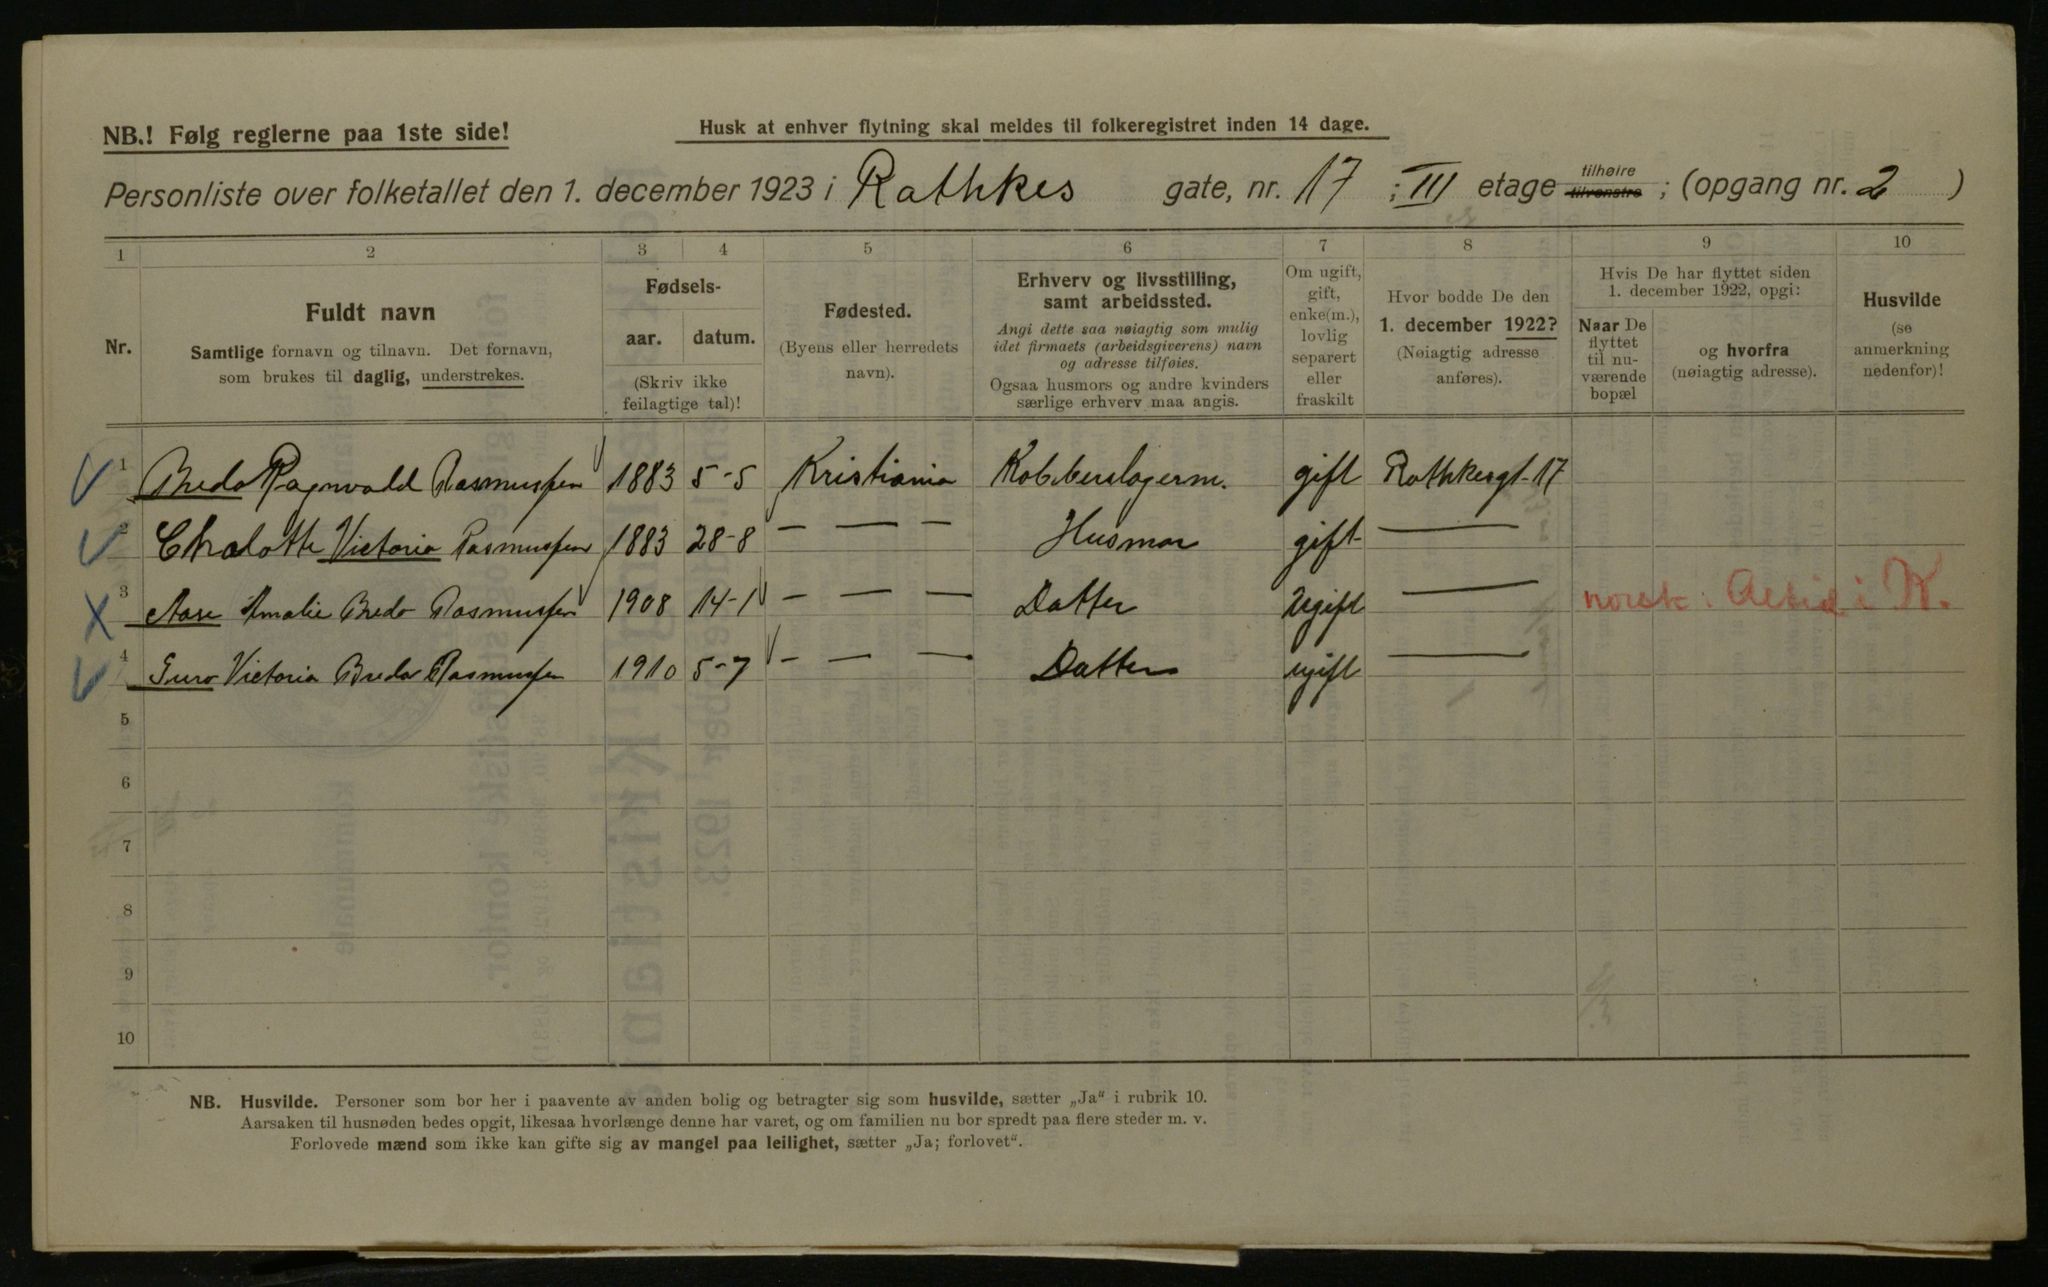 NB.! Følg reglerne paa 1ste side!
Husk at enhver flytning skal meldes til folkeregistret inden 14 dage.
Personliste over folketallet den 1. december 1923 i Rathkes gate, nr. 17 ; III etage tilhøire tilvenstre ; (opgang nr. 2 )
1 2 3 4 5 6 7 8 9 10
Nr.
Fuldt navn
Samtlige fornavn og tilnavn. Det fornavn,
som brukes til daglig, understrekes.
Fødsels-
aar. datum.
(Skriv ikke
feilagtige tal)!
Fødested.
(Byens eller herredets
navn).
Erhverv og livsstilling,
samt arbeidssted.
Angi dette saa nøiagtig som mulig
idet firmaets (arbeidsgiverens) navn
og adresse tilføies.
Ogsaa husmors og andre kvinders
særlige erhverv maa angis.
Om ugift,
gift,
enke(m.),
lovlig
separert
eller
fraskilt
Hvor bodde De den
1. december 1922?
(Nøiagtig adresse
anføres).
Hvis De har flyttet siden
1. december 1922, opgi:
Naar De
flyttet
til nu-
værende
bopæl
og hvorfra
(nøiagtig adresse).
Husvilde
(se
anmerkning
nedenfor)!
1 Breda Ragnvald Rasmussen 1883 5-5 Kristiania Kobberslagerm. gift Rathkesgt. 17
2 Chalotte Victoria Rasmussen 1883 28-8 — — — Husmor gift —
3 Aase Amalie Breda Rasmussen 1908 14-1 — — — Datter Ugift — norsk: Altid i K.
4 Guro Victoria Breda Rasmussen 1910 5-7 — — — Datter ugift —
5
6
7
8
9
10
NB. Husvilde. Personer som bor her i paavente av anden bolig og betragter sig som husvilde, sætter „Ja“ i rubrik 10.
Aarsaken til husnøden bedes opgit, likesaa hvorlænge denne har varet, og om familien nu bor spredt paa flere steder m. v.
Forlovede mænd som ikke kan gifte sig av mangel paa leilighet, sætter „Ja; forlovet“.